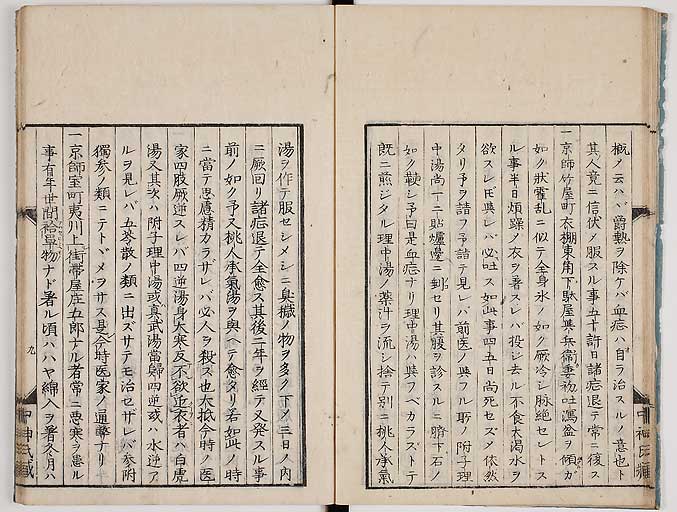 概ノ云ハバ爵熱ヲ除ケバ血症ハ自ラ治スルノ意也ト
其人竟ニ信伏ノ服スル事五十許日諸症退テ常ニ復ス
一京師竹屋町衣棚東角下駄屋與兵衛妻初吐瀉盆ヲ傾ガ
如ク狀霍乱ニ似テ全身氷ノ如ク厥冷シ脉絶セレトス
ル事半日煩躁ノ衣ヲ著スレバ投シ去ル不食大渇水ヲ
欲スレ𪜈與レバ必吐ス如此事四五日尚死セズメ依然
タリ予ヲ請フ予詣テ見レバ前医ノ與フル所ノ附子理
中湯尚一二貼爐邊ニ卸セリ其腹ヲ診スルニ臍下石ノ
如ク鞕シ予曰是血症ナリ理中湯ハ與フベカラズトテ
既ニ煎ジタル理中湯ノ薬汁ヲ流シ捨テ別ニ桃人承氣
中神氏蔵
湯ヲ作テ服セシメシニ臭穢ノ物ヲ多ク下メ三日ノ内
ニ厥回リ諸症退テ全愈ス其後二年ヲ經テ又発スル事
前ノ如ク予又桃人承氣湯ヲ與ヘテ愈タリ若如此ノ時
ニ當テ思慮精カラザレバ必人ヲ殺ス也大抵今時ノ医
家四肢厥逆スレバ四逆湯身大寒反不欲近衣者ハ白虎
湯又其次ハ附子理中湯或真武湯當歸四逆或ハ水逆ア
ルヲ見レバ五苓散ノ類ニ出ズサテモ治セザレバ参附
獨参ノ類ニテトヾメヲサス是今時医家ノ通弊ナリ
一京師室町夷川上街帶屋庄五郎ナル者常ニ悪寒ヲ患ル
事有年世間袷單物ナド著ル頃ハハヤ綿入ヲ著冬月ハ
九
中神氏蔵